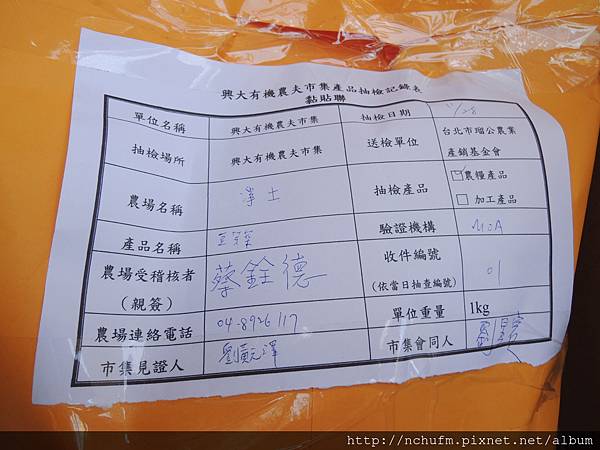 興大有機農夫市集產品抽檢記錄表
黏貼聯
單位名稱 興大有機農夫市集 抽檢日期 11/28
抽檢場所 興大有機農夫市集 送檢單位 台北市瑠公農業
產銷基金會
農場名稱 淨土 抽檢產品 ☑農糧產品
□ 加工產品
產品名稱 驗證機構 MOA
農場受稽核者 蔡銓德 收件編號 01
(親簽) (依當日抽查編號)
農場連絡電話 04-8926117 單位重量 1kg
市集見證人 市集會同人
http://nchufm.pixnet.net/album